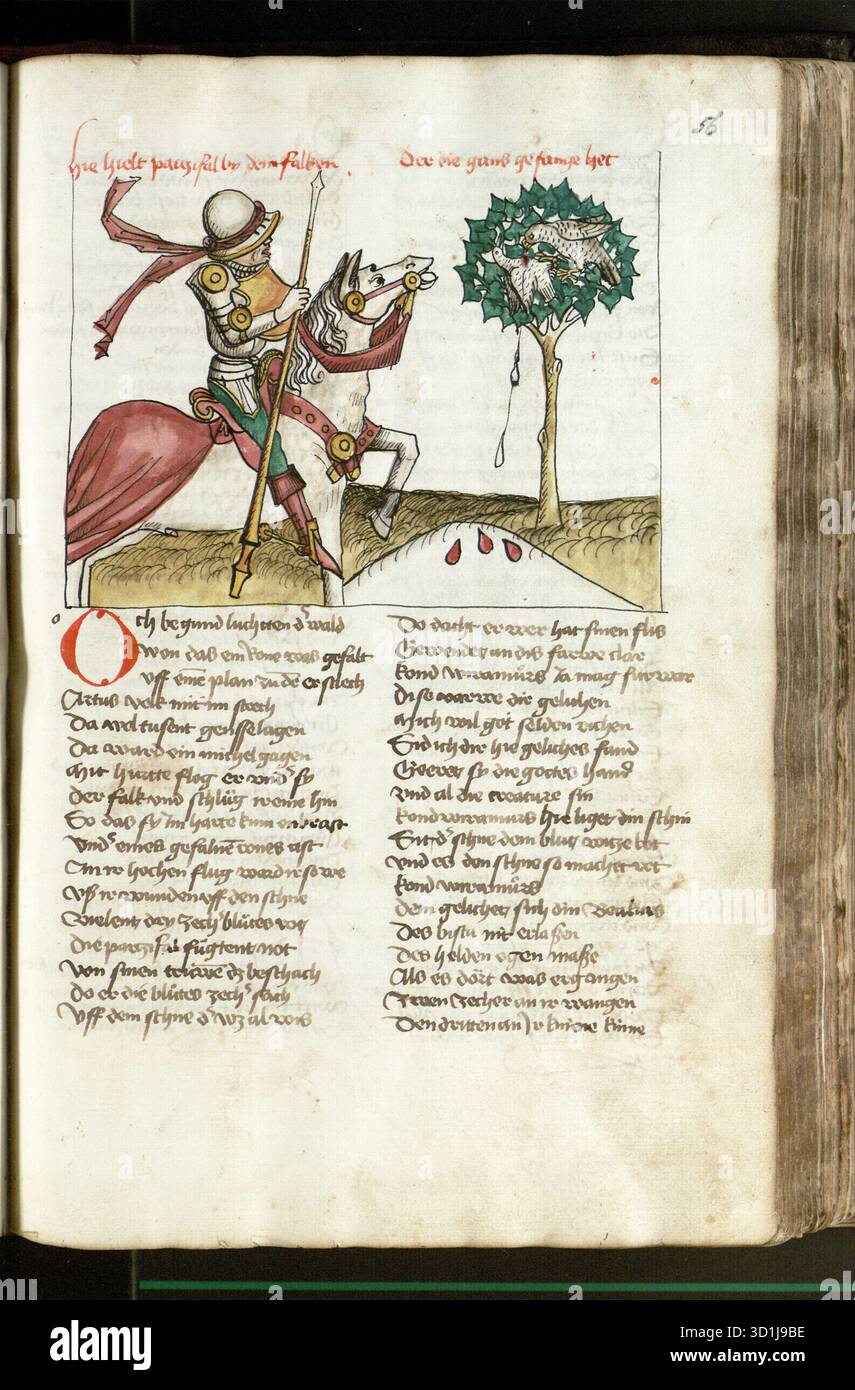 56
hie hielt parzifal by dem falken
Der die gans gefange het
Och begund luchtten d' wald
won das ein rone was gefalt
Uff eine plan zu dē er slech
Artus valk mit im strech
Da wol tusent gense lagen
Da ward ein michel gagen
Mit hurtte flog er und' sy
der falk und schlůg r eine hin
So das sy im harte kum enbrast
Und' eines gefallnē rones ast
An ir hochen flug ward ir so we
Uß ir wunden uff den schne
Vielent dry zech' blůtes rot
die parzifal fůgtent not
Von sinen trüwe dz beschach
do er die blůtes zech' sach
Uff dem schne d' wz al wis
Do dacht er wer hat sinen flis
Gewendet an dis farwe clar
kond wiramůrs mag fur war
Mich wil got selden richen
Sid ich dir hie geliches fand
Geeret sy die gottes hand
Und al die creature sin
kond wiramurs hie liget din schin
Sit d' schne dem blut wize bot
Und es den schne so machet rot
kond wiramůrs
dem gelichet sich din
Des bistu nit erlaßen
Des helden ogen maße
Als es dort was ergangen
Zwen zecher an ir wangen
Den dritten an ir kinne
alamy
Image ID: 3D1J9BE
www.alamy.com